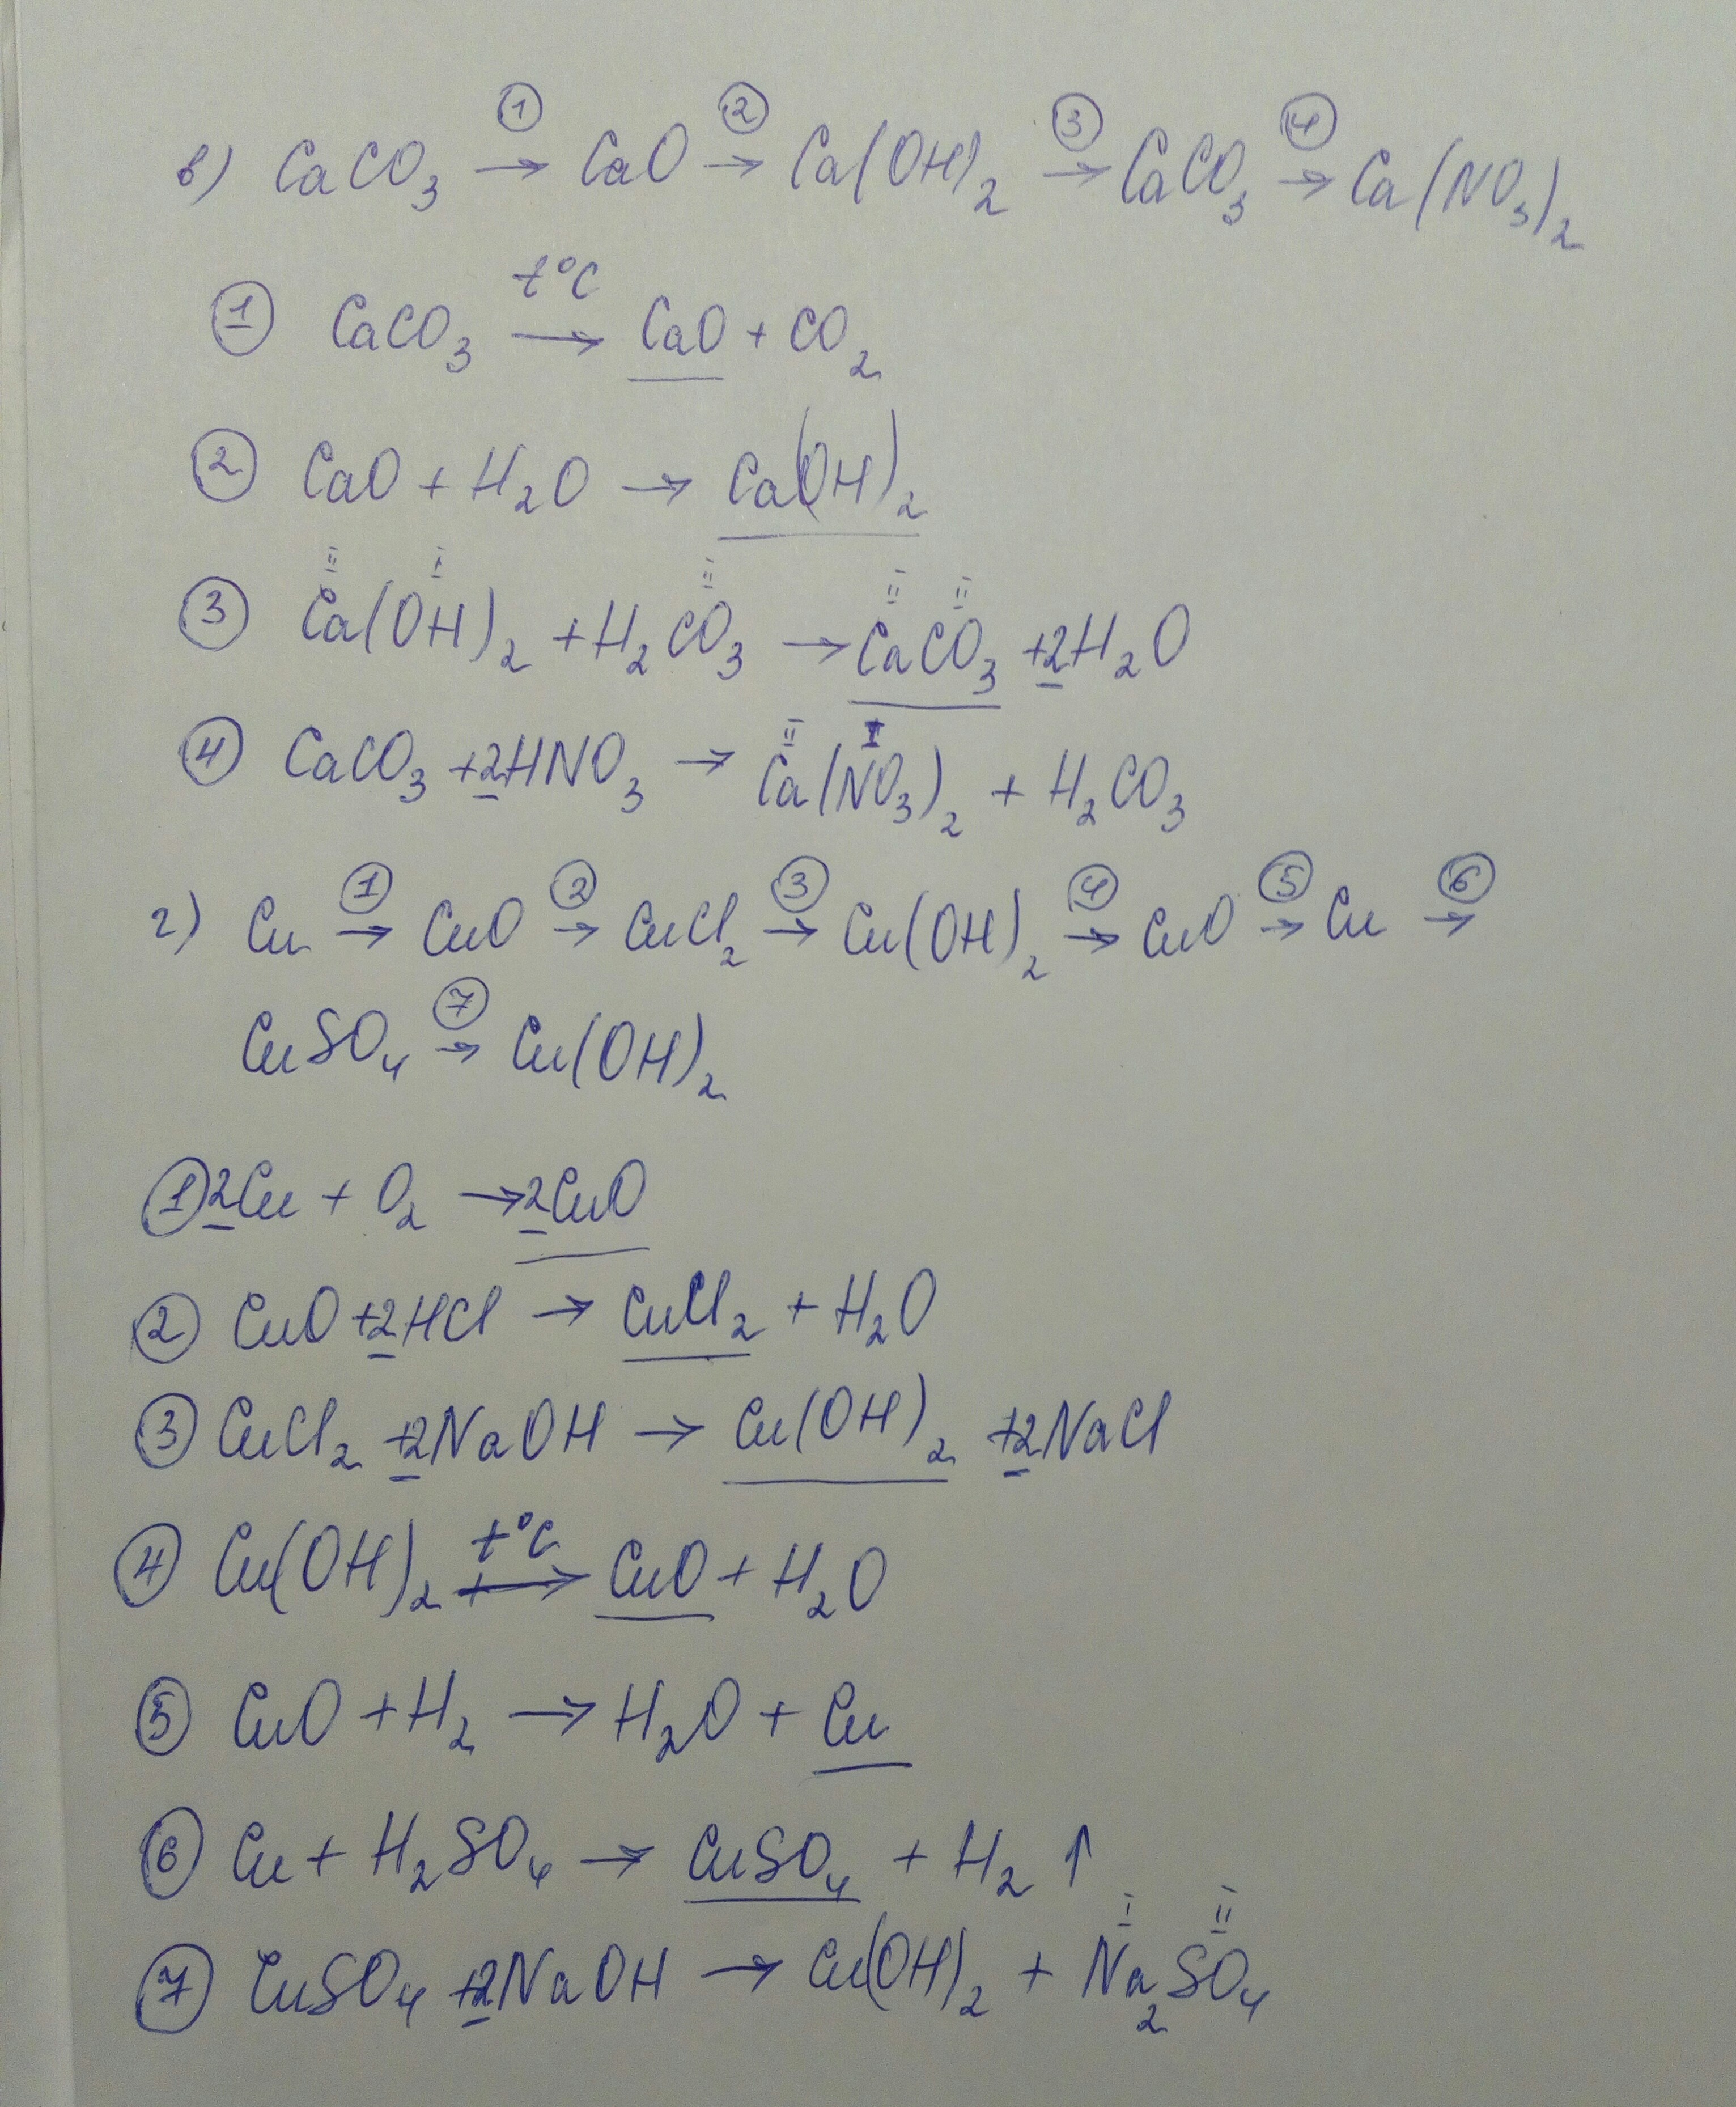 в) CaCO₃ →① CaO →② Ca(OH)₂ →③ CaCO₃ →④ Ca(NO₃)₂
① CaCO₃ →t°C CaO + CO₂
② CaO + H₂O → Ca(OH)₂
③ Ca(II)(OH)(I)₂ + H₂CO₃(II) → Ca(II)CO₃(II) + 2H₂O
④ CaCO₃ + 2HNO₃ → Ca(II)(NO₃)(I)₂ + H₂CO₃
г) Cu →① CuO →② CuCl₂ →③ Cu(OH)₂ →④ CuO →⑤ Cu →⑥
CuSO₄ →⑦ Cu(OH)₂
① 2Cu + O₂ → 2CuO
② CuO + 2HCl → CuCl₂ + H₂O
③ CuCl₂ + 2NaOH → Cu(OH)₂ + 2NaCl
④ Cu(OH)₂ →t°C CuO + H₂O
⑤ CuO + H₂ → H₂O + Cu
⑥ Cu + H₂SO₄ → CuSO₄ + H₂↑
⑦ CuSO₄ + 2NaOH → Cu(OH)₂ + Na(I)₂SO₄(II)